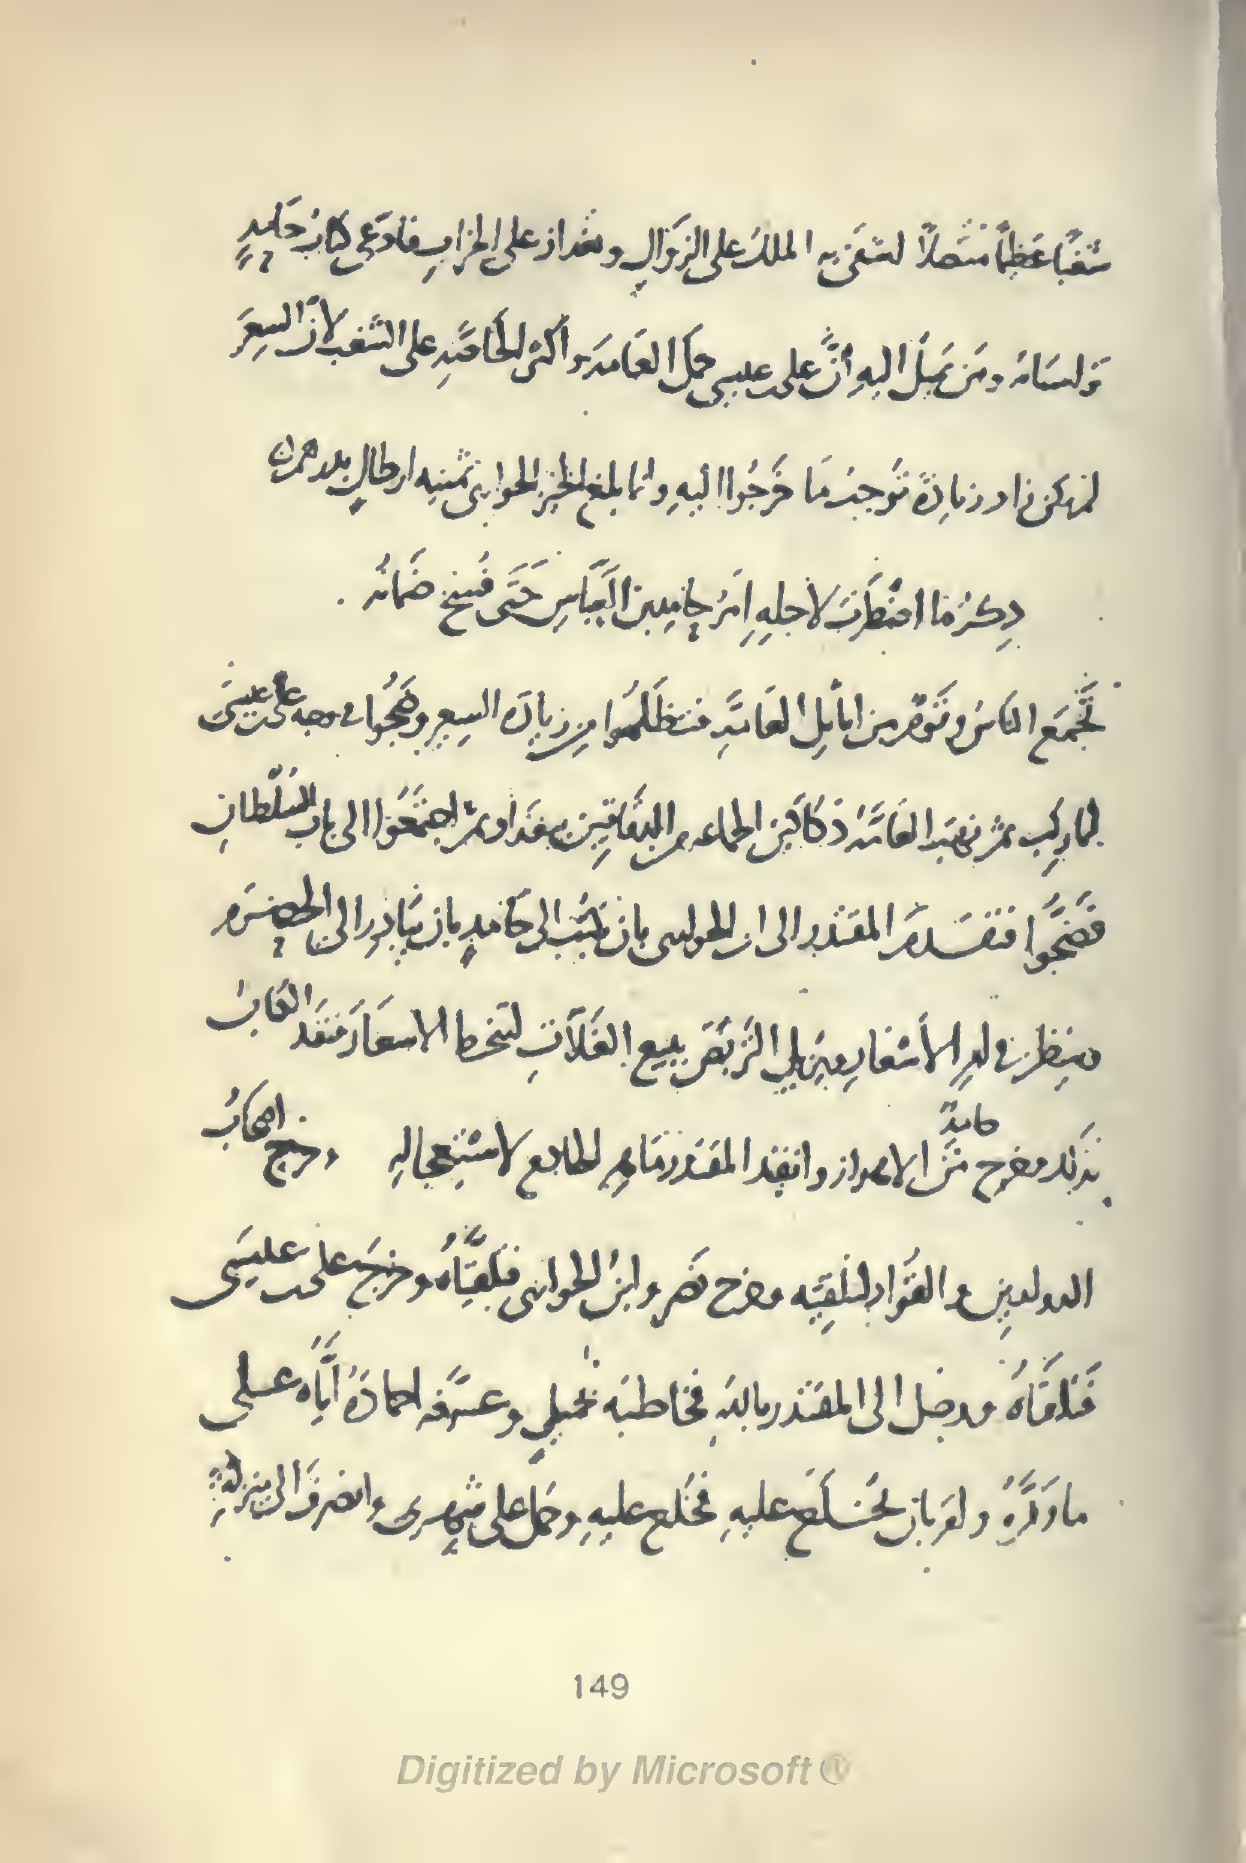 شغبًا عظيمًا متصلًا اشفى به الملك على الزوال وبغداد على الخراب فادعى كتاب حامدٍ
واسبابه ومن يميل اليه أنَّ على بن عيسى حمل العامة واكثر الخاصة على الشغب لأنّ السعر
لم يكن زاد زيادة توجب ما خرجوا اليه وانما بلغ الخبز الحوارى ثمنيه ارطالٍ بدرهم
ذكر ما اضطرب لاجله امر حامد بن العباس حتى فسخ ضمانه .
تجمع الناس وتوفر من اماثل العامة فتظلموا من زيادة السعر وضجوا فى وجه على بن عيسى
لما ركب ثم نهبت العامة دكاكين الجماعه من الدقاقين ببغداد ثم اجتمعوا الى باب السلطان
فضجوا فتقدم المقتدر الى ابن الحوارى بان يكتب الى حامدٍ بان يبادر الى الحضرة
وينظر فى امر الاسعار ببيع الغلات لتنحط الاسعار فنفذ الكتاب
بذلك وخرج حامدٌ من الاهواز وانفذ المقتدر الخادم لاستعجاله وخرج اصحاب
الدواوين والقواد لتلقيه وخرج نصر وابن الحوارى فتلقياه وخرج على بن عيسى
فتلقاه ووصل الى المقتدر بالله فخاطبه بجميلٍ وعرفه احماده اياه على
ما دبره وامر بان يخلع عليه فخلع عليه وحمل على شهرى وانصرف الى منزله
149
Digitized by Microsoft ®